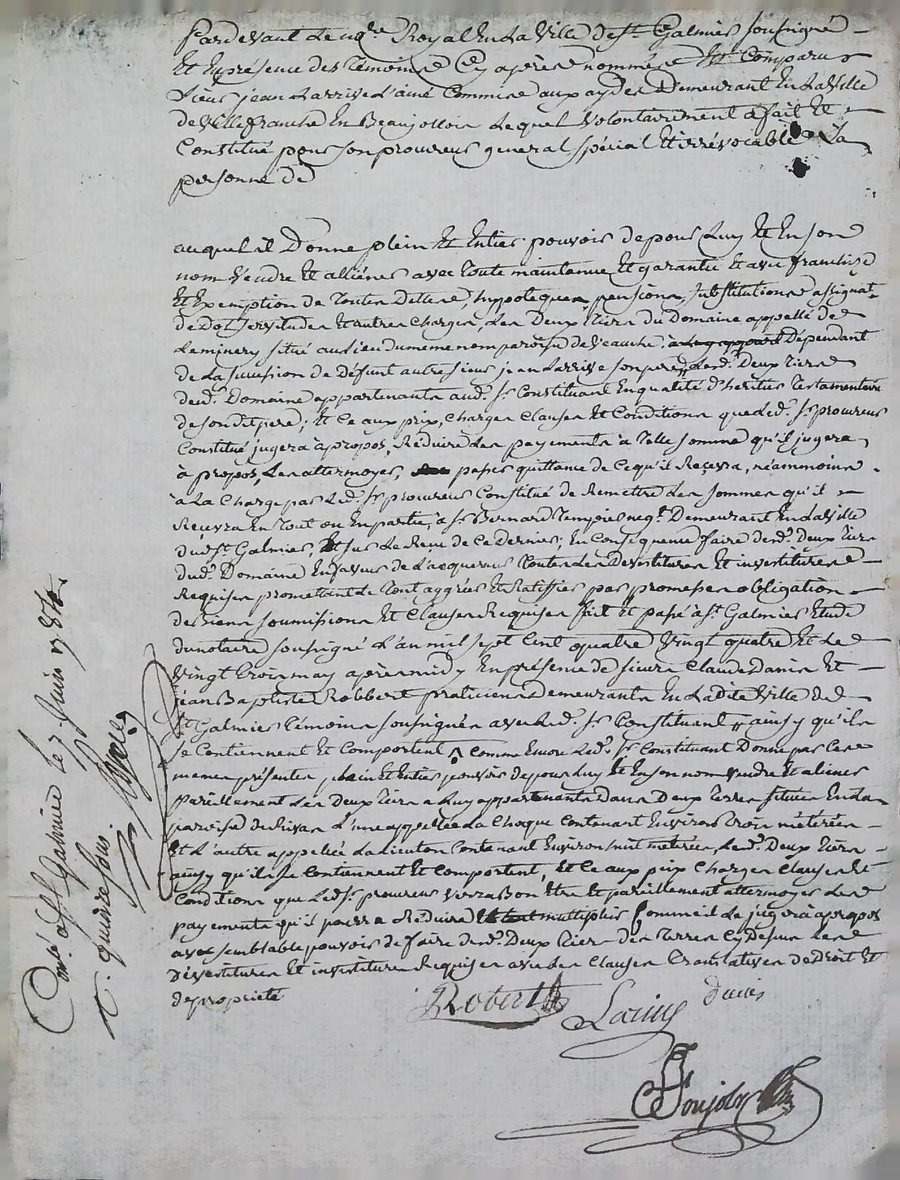 Pardevant le no.re Royal En la Ville de St. Galmier soussigné
Et En présence des temoins Cy après nommés Est Comparu
Sieur jean Larrive L'ainé Commis aux aydes Demeurant En la Ville
de Villefranche En Beaujollois Lequel Volontairement a fait Et
Constitué pour son procureur general spécial Et irrévocable La
personne de
auquel il Donne plein Et Entier pouvoir de pour Luy Et En son
nom Vendre Et alliéner avec toute maintenue Et garantie Et avec franchise
Et Exemption de toutes Dettes, hypoteques, pensions, substitutions assignat.
de Dot, servitudes Et autres Charges, Les Deux tiers du Domaine appellé de
Leminery situé audit lieu du meme nom paroisse de Veauche, Dépendant
de La succession de Défunt autre sieur jean Larrive son pere, Lesd. Deux tiers
dud. Domaine appartenants aud. Sr. Constituant En qualité d'heritier testamentaire
de sondit pere; Et Ce aux prix, Charges Clauses Et Conditions que Led. Sr. procureur
Constitué jugera à propos, Réduire Les payements à telle somme qu'il jugera
à propos, Les attermoyer, passer quittance de Ce qu'il Recevra, néammoins
à La Charge par Led. Sr. procureur Constitué de Remettre Les sommes qu'il
Recevra En tout ou En partie, à Sr. Bernard neg.t Demeurant En La Ville
dud. St. Galmier, Et sur Le Recu de Ce Dernier; En Consequence faire desd. Deux tiers
dud. Domaine En faveur de L'acquereur toutes Les Devestitures Et investitures
Requises promettant Le tout aggréer Et Ratiffier par promesses obligation
des biens soumissions Et Clauses Requises fait Et passé à St. Galmier Etude
du notaire soussigné L'an mil sept Cent quatre Vingt quatre Et Le
Vingt trois may après midy En présence de sieurs Claude Danis Et
jean Baptiste Robbert praticiens demeurants En La dite Ville de
St. Galmier témoins soussignés avec Led. Sr. Constituant, ainsy qu'ils
se Contiennent Et Comportent, Comme Encore Led. Sr. Constituant Donne par Ces
memes présentes, plein Et Entier pouvoir de pour Luy Et En son nom Vendre Et aliener
pareillement Les Deux tiers a Luy appartenants Dans Deux terres situées En La
paroisse de Rivas L'une appellée La Choque Contenant Environ trois métérées
Et L'autre appellée Contenant Environ huit métérées, Lesd. Deux tiers
ainsy qu'ils se Contiennent Et Comportent, Et Ce aux prix Charges Clauses Et
Conditions que Led. Sr. procureur Verra Bon Etre Et pareillement attermoyer Les
payements qu'il pourra Réduire multiplier Comme il Le jugera à propos
avec semblable pouvoir de faire desd. Deux tiers des terres Cy Dessus Les
Devestitures Et investitures Requises avec Les Clauses translatives de Droit Et
de proprieté
Robert Larive Danis
Ponjoly
Con.lé à St. Galmier Le 7 Juin 1784
R. quinze sous.